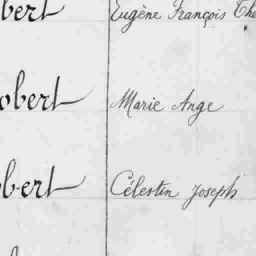 bert Eugène François The
obert Marie Ange
obert Célestin Joseph